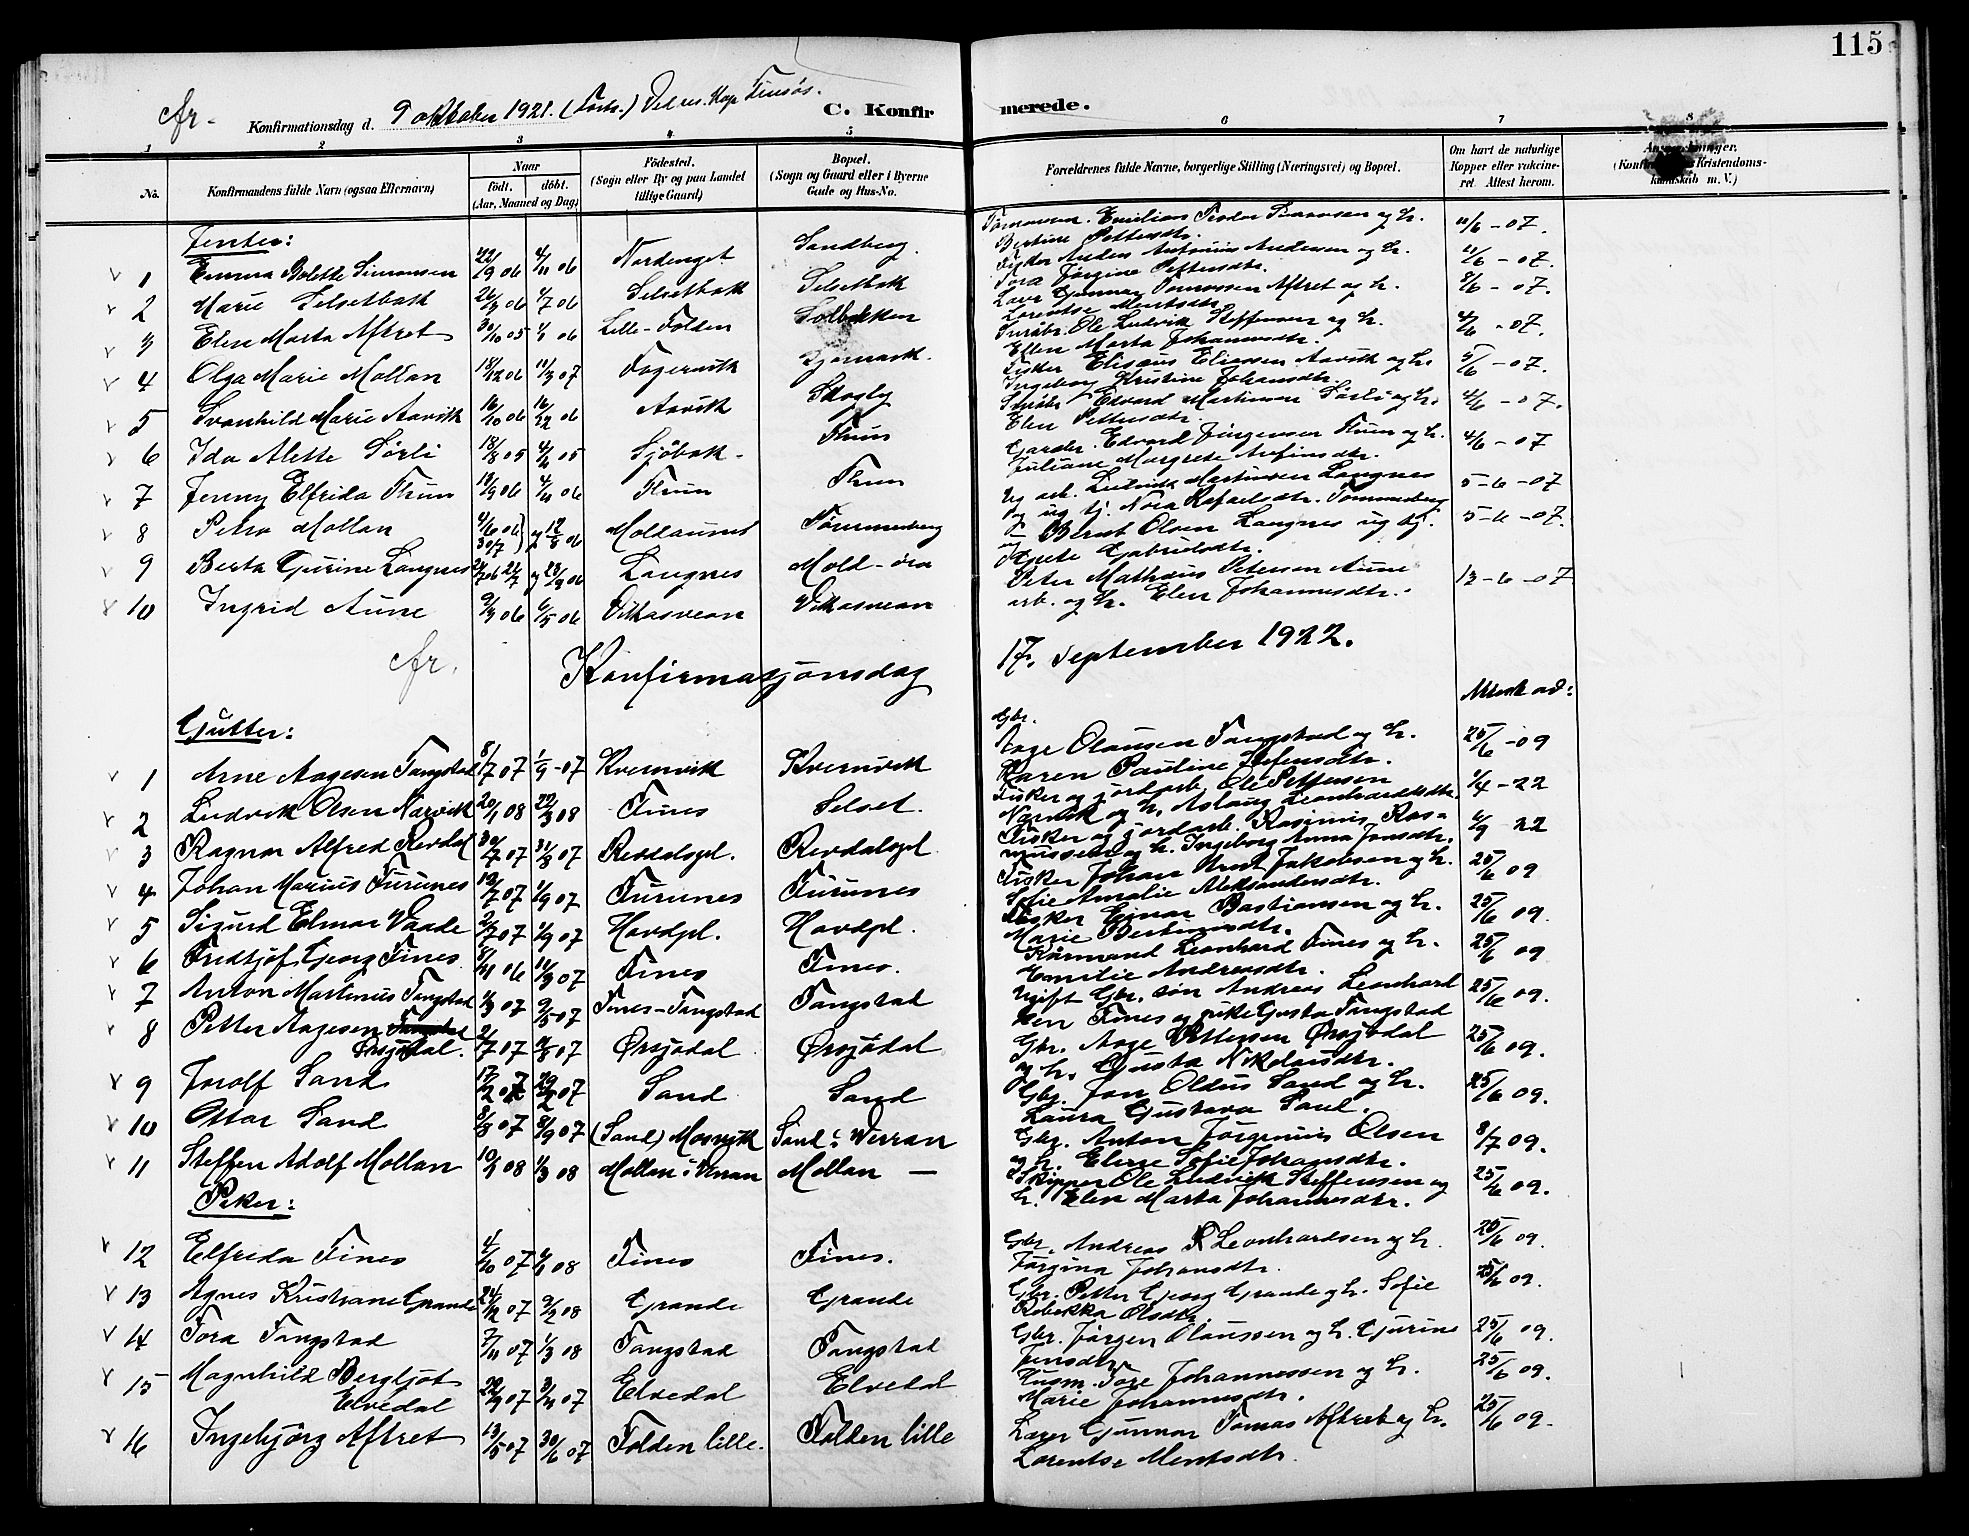 115
Konfirmationsdag d. 9 oktober 1921. (Forts.) Ved res. kap.
C. Konfirmerede.
1 2 3 4 5 6 7 8
No.
Konfirmandens fulde Navn (ogsaa Efternavn)
Naar
födt. döbt.
(Aar, Maaned og Dag)
Födested.
(Sogn eller By og paa Landet
tillige Gaard)
Bopæl.
(Sogn og Gaard eller i Byerne
Gade og Hus-No.
Forældrenes fulde Navne, borgerlige Stilling (Næringsvei) og Bopæl.
Om havt de naturlige
Kopper eller vakcine-
ret Attest herom.
(Konf Kristendoms-
kundskab m. V.)
Jenter:
1 Emma Bolette Simonsen 22/9 06 4/11 06 Nordenget Sandberg Emilius Teodor Simonsen og h. Bertine Pettersdtr. 11/6 - 07.
2 Marie Selsetbak 26/3 06 4/7 06 Selsetbak Selsetbak Fisker Anders Antonius Andersen og h. Tora Jørgine Pettersdtr. 11/6 - 07.
3 Elen Marta Aftret 30/10 05 4/1 06 Lille-Folden Solbakken Gunnar Tomassen Aftret og h. Lorentse Mentsdtr. 8/6 - 07.
4 Olga Marie Mollan 18/12 06 11/3 07 Fagervik Ole Ludvik Steffensen og h. Ellen Marta Johannesdtr. 4/6 - 07.
5 Svanhild Marie Aarvik 16/10 06 Aarvik Skogly Fisker Elisæus Eliassen Aarvik og h. Ingeborg Kristine Johansdtr. 5/6 - 07.
6 Ida Alette Sørli 18/8 05 05 Sjöbak Flaun Edvard Martinsen Sørli og h. Elen Pettersdtr. 4/6 - 07.
7 Jenny Elfrida Flaun 18/9 06 4/11 06 Flaun Flaun Gårdbr. Edvard Jørgensen Flaun og h. Juliane Margrete Arfinsdtr. 4/6 - 07
8 Petra Mollan 4/6 06 30/7 og 12/8 06 Mollaunet Tömmerberg Ug. arb. Ludvik Martinsen Langnes og ug. tj. Nora Rafaelsdtr. Tömmerberg 5-6-07
9 Berta Gurine Langnes 06 22/7 og 23/9 06 Langnes Mold-öra Bernt Olsen Langnes ug. tj. Grete Gabrielsdtr. 5-6-07.
10 Ingrid Aune 9/3 06 6/5 06 Vikasvean Vikasvean Peter Mathæus Petersen Aune arb. og h. Elen Johannesdtr. 13-6-07
Konfirmasjonsdag 17. september 1922.
Gutter:
1 Arne Aagesen Tangstad 8/7 07 1/9-07 Kvernvik Kvernvik Gbr. Aage Olausen Tangstad og h. Karen Pauline 25/6-09
2 Ludvik Olsen Narvik 20/1 08 22/3 08 Fines Selset. Fisker og jordarb. Ole Pettersen Narvik og h. Aslaug Leonhardsdtr. 1/4-22
3 Ragnar Alfred Revdal 30/7 07 31/8 07 Revdalspl. Revdalspl. Fisker og jordarb. Kasinius Rasmussen og h. Ingeborg Anna Jonsdtr. 4/9 22
4 Johan Marius Furunes 19/7 07 1/9 07 Furunes Furunes Fisker Johan Jakobsen og h. Sofie Amalie Aleksandersdtr. 25/6 09
5 Sigurd Elmar Vaade 2/7 07 1/9 07 Havdpl. Havdpl. Fisker Einar Bastiansen og h. Marie 25/6 09.
6 Fridtjof Georg Fines 8/11 06 11/3 07 Fines Fines. Leonhard Fines og h. Emilie Andreasdtr. 25/6 09
7 Anton Martinus Tangstad 1/3 07 9/5 07 Fines-Tangstad Tangstad Ugift Gbr. søn Andreas Leonhard- sen Fines og pike Gusta Tangstad 25/6 09.
8 Petter Aagesen Ørsjødal. 2/7 07 4/8 07 Ørsjødal Ørsjödal Gbr. Aage Pettersen Ørsjødal og h. Gusta Nikolausdtr. 25/6 09.
9 Jorolf Sand 17/2 07 07 Sand Sand Gbr. Jon Oldus Sand og h. Laura Gustava Sand. 25/6 09.
10 Ottar Sand 8/8 07 8/9 07 (Sand) Mosvik Sand i Verran Gbr. Anton Jørginius Olsen og h. Eline Sofie Johansdtr. 8/7 09.
11 Steffen Adolf Mollan 10/1 08 1/3 08 Mollan i Verran Mollan — Skipper Ole Ludvik Steffensen og h. Elen Marta Johannesdtr. 25/6 09.
Piker:
12 Elfrida Fines 4/10 07 08 Fines Fines. Gbr. Andreas Leonhardsen og h. Jørgina Johansdtr. 25/6 09.
13 Agnes Kristiane Grande 24/12 07 9/2 08 Grande Grande Gbr. Petter Georg Grande og h. Sofie Rebekka Olsdtr. 25/6 09.
14 Tora Tangstad 7/11 07 1/3 08 Tangstad Tangstad Gbr. Jørgen Olaussen og h. Gurine Jensdtr. 25/6 09.
15 Magnhild Bergljot Elvedal 22/9 07 3/11 07 Elvedal Elvedal Husm. Tore Johannessen og h. Marie Johannesdtr. 25/6 09.
16 Ingebjörg Aftret 13/5 07 30/6 07 Folden lille. Folden lille Lærer Gunnar Tomas Aftret og h. Lorentse Mentsdtr. 25/6 09.